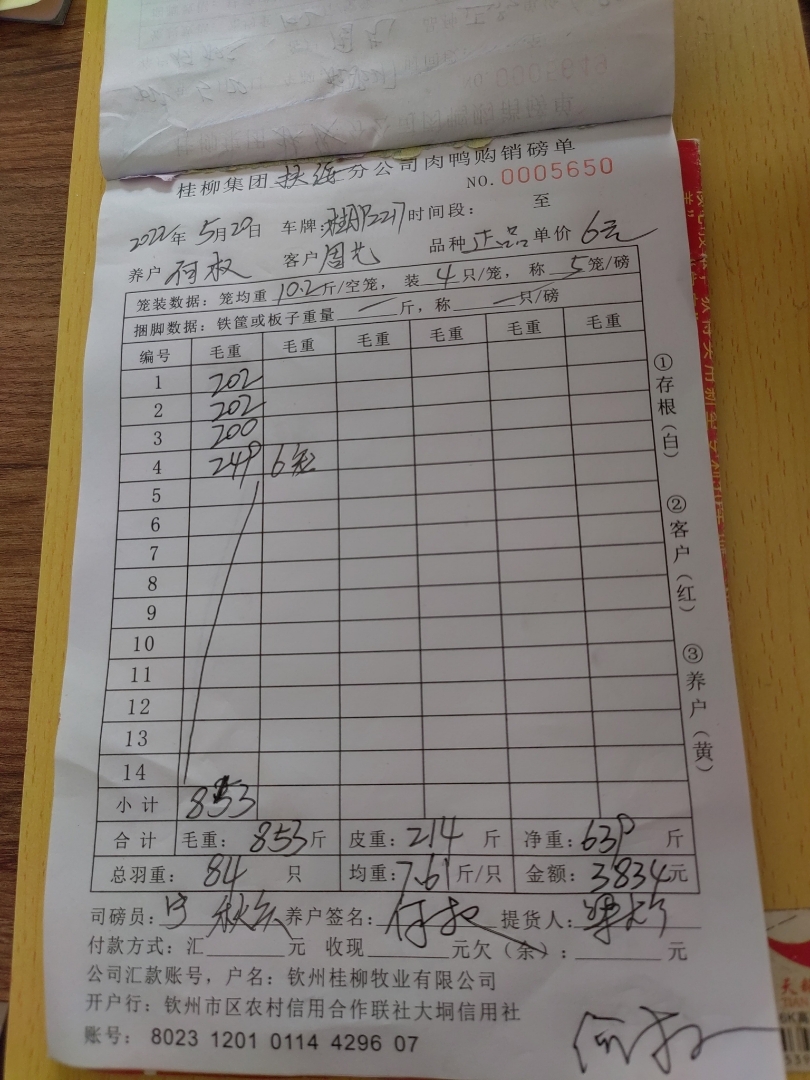 桂柳集团 分公司肉鸭购销磅单
NO.0005650
2022年 5月20日 车牌: 时间段: 至
养户 何权 客户 周 品种 正品 单价 6元
笼装数据: 笼均重 10.2 斤/空笼, 装 4 只/笼, 称 5 笼/磅
捆脚数据: 铁筐或板子重量 一 斤, 称 一 只/磅
编号 毛重 毛重 毛重 毛重 毛重 毛重
1 202
2 202
3 200
4 249 6笼
5
6
7
8
9
10
11
12
13
14
小计 853
合计 毛重: 853 斤 皮重: 214 斤 净重: 639 斤
总羽重: 84 只 均重: 7.61 斤/只 金额: 3834 元
司磅员: 养户签名: 何权 提货人:
付款方式: 汇 元 收现 元欠(余): 元
公司汇款账号, 户名: 钦州桂柳牧业有限公司
开户行: 钦州市区农村信用合作联社大垌信用社
账号: 8023 1201 0114 4296 07
何权
①存根(白)
②客户(红)
③养户(黄)